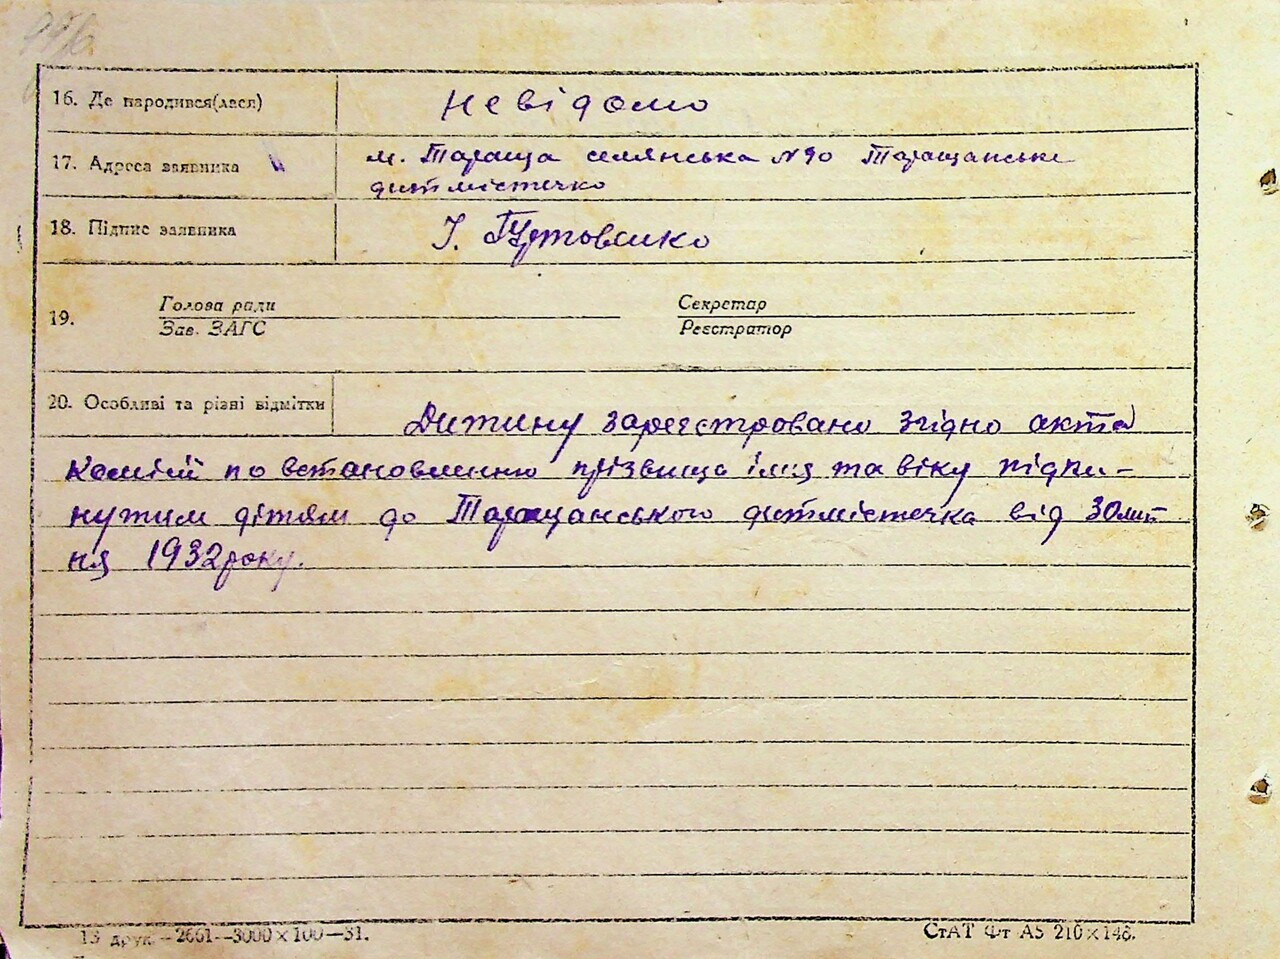 16. Де народився(лася) невідомо
17. Адреса заявника м. Тараща селянська №90 Таращанське
дитмістечко
18. Підпис заявника І.
19. Голова ради Секретар
Зав. ЗАГС Реєстратор
20. Особливі та різні відмітки Дитину зареєстровано згідно акта
комісії по встановленню прізвища імя та віку підки-
нутим дітям до Таращанського дитмістечка від 30 лип
ня 1932 року.
13 друк.-2661--3000×100-31. СтАТ Фт А5 210×148.